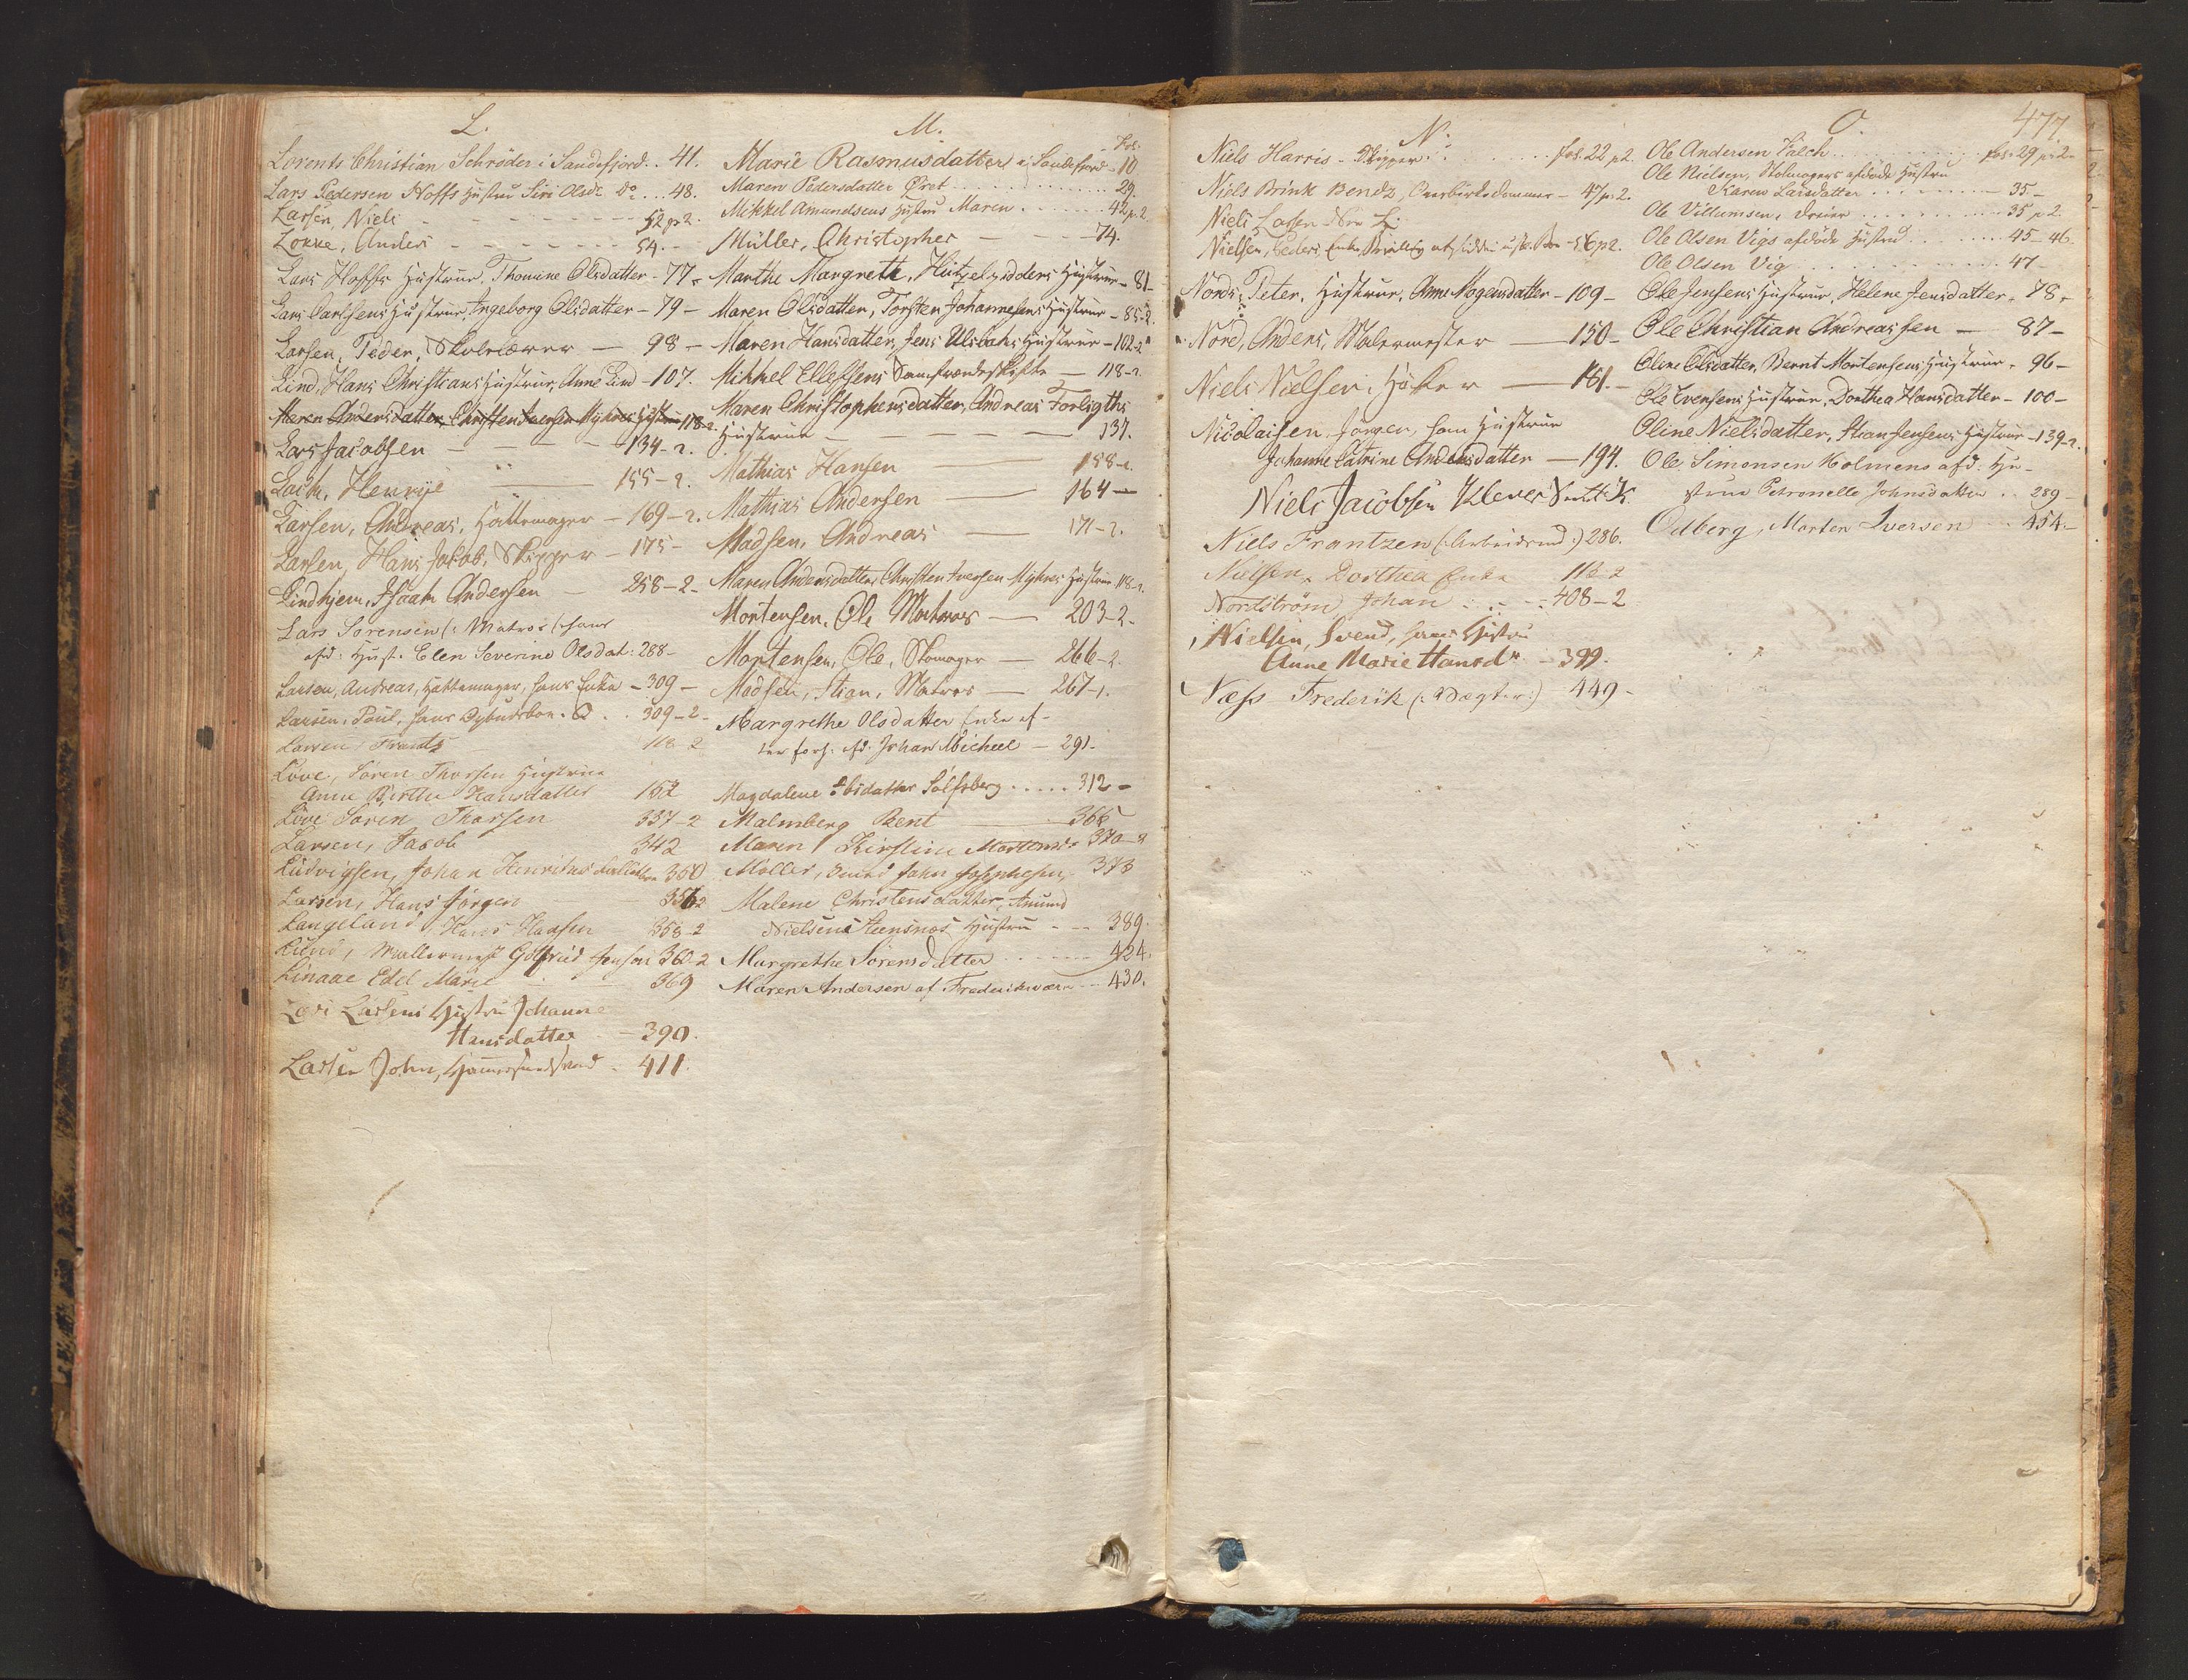 L.
Lorents Christian Schröder i Sandefjord. . 41.
Lars Pedersen Hoffs Hustru Siri Olsdr Do . . . 48.
Larsen, Niels - - - - - - - 52 p 2.
Lökke, Anders - - - - - - 54. -
Lars Hoffs Hustrue, Thomine Olsdatter - 77 -
Lars Carlsens Hustrue, Ingeborg Olsdatter - 79 -
Larsen, Peder, Skolelærer — 98 -
Lind, Hans Christians Hustrue, Anne Lind - 107.
Maren Andersdatter, Christen Iversen Myhres Hustrue 118-2.
Lars Jacobsen — - - 134-2.
Lach, Henrye — 155-2.
Larsen, Andreas, Hattemager - 169-2.
Larsen, Hans Jacob, Skipper - 175-
Lindhjem, Isaak Andersen - 258-2-
Lars Sörensen (: Matros (: hans
afd: Hust. Elen Severine Olsdat: 288-
Larsen, Andreas, Hattemager, hans Enke - 309 -
Larsen, Poul, hans Opbudsbo . . 309-2-
Larsen, Frants 118-2
Löve, Sören Thorsen Hustrue
Anne Berthe Hansdatter 152
Löve Sören Thorsen 337-2
Larsen, Jacob 342
Ludvigsen, Johan Henrik 350
Larsen, Hans Jörgen 356 2
Langeland, Hans Hansen 358-2
Lund, Mallermest Gotfried Jensen 360-2
Linaae Edel Marie 369
Lars Larsens Hustru Johanne
Hansdatter - 390.
Larsen John, - 411.
M.
Fol.
Marie Rasmusdatter i Sandefjord - 10
Maren Pedersdatter Öret . . . . . . . . 29.
Mikkel Amundsens Hustru Maren . . . . . . 42 p. 2.
Müller, Christopher — - - 74.
Marthe Margrethe, Hustrue - 81-
Maren Olsdatter, Torsten Johannesens Hustrue - 85-2.
Maren Hansdatter, Jens Ulsbaks Hustrue - 102-2
Mikkel Ellefsens Samfrændeskifte — 118-2.
Maren Christophersdatter, Andreas Forligths
Hustrue - - - - 137.
Mathias Hansen — 158-2.
Mathias Andersen — 164 —
Madsen, Andreas — 171-2.
Maren Andersdatter, Christen Iversen Myhres Hustrue 118-2.
Mortensen, Ole Matros — 203-2-
Mortensen, Ole, Skomager — 266-2.
Madsen, Stian, Matros — 267-1.
Margrethe Olsdatter Enke ef-
ter forh: afd. Johan Micheel — 291.
Magdalene Solfsberg . . . . . 312 -
Malmberg Bent — 366
Maren Kirstine Mortens 370-2
Möller, John Josephsen 373
Malene Christensdatter, Amund
Nielsens Steensnæs Hustru - - - 389.
Margrethe Sörensdatter . . . . . . . 424.
Maren Andersen af Frederiksværn - - 430.
N.
Niels Harris - Skipper . . . . . . . . . fol. 22 p 2.
Niels Brink Bendz, Overbirkedommer - 47 p. 2.
Niels Larsen L.
Nielsen, Peders Enke - 56 p 2.
Nords, Peter, Hustrue, Anne Mogensdatter - 109 -
Nord, Anders, Malermester — 150 -
Niels Nielsen, Höker — 181. -
Nicolaisen Jörgen, ham Hustrue
Johanne Catrine Andersdatter — 194.
Niels Jacobsen Klever K.
Niels Frantzen (: Arbeidsmd :) 286.
Nielsen, Dorthea Enke 113-2
Nordström, Johan . . . . 408-2
Nielsen, Svend, hans Hustru
Anne Marie Hansdr — 399.
Næss Frederik (: Vægter :) 449-
O.
477.
Ole Andersen Falch . . . . . . . . . . fol. 29 p. 2-
Ole Nielsen, Stolmagers afdöde Hustru
Karen Larsdatter . . . . . . . 35. -
Ole Villumsen, Dreier . . . . . . . . 35 p 2.
Ole Olsen Vigs afdöde Hustru . . . . . . . 45-46.
Ole Olsen Vig . . . . . . . . . 47-
Ole Jensens Hustrue, Helene Jensdatter - 78 -
Ole Christian Andreassen — 87 -
Oline Olsdatter, Bernt Mortensens Hustrue - 96 -
Ole Evensens Hustrue, Dorthea Hansdatter - 100 -
Oline Nielsdatter, Stian Jensens Hustrue - 139-2.
Ole Simonsen Holmens afd: Hu-
strue Petronelle Johnsdatter . . 289-
Odberg, Morten Iversen . . 454.-